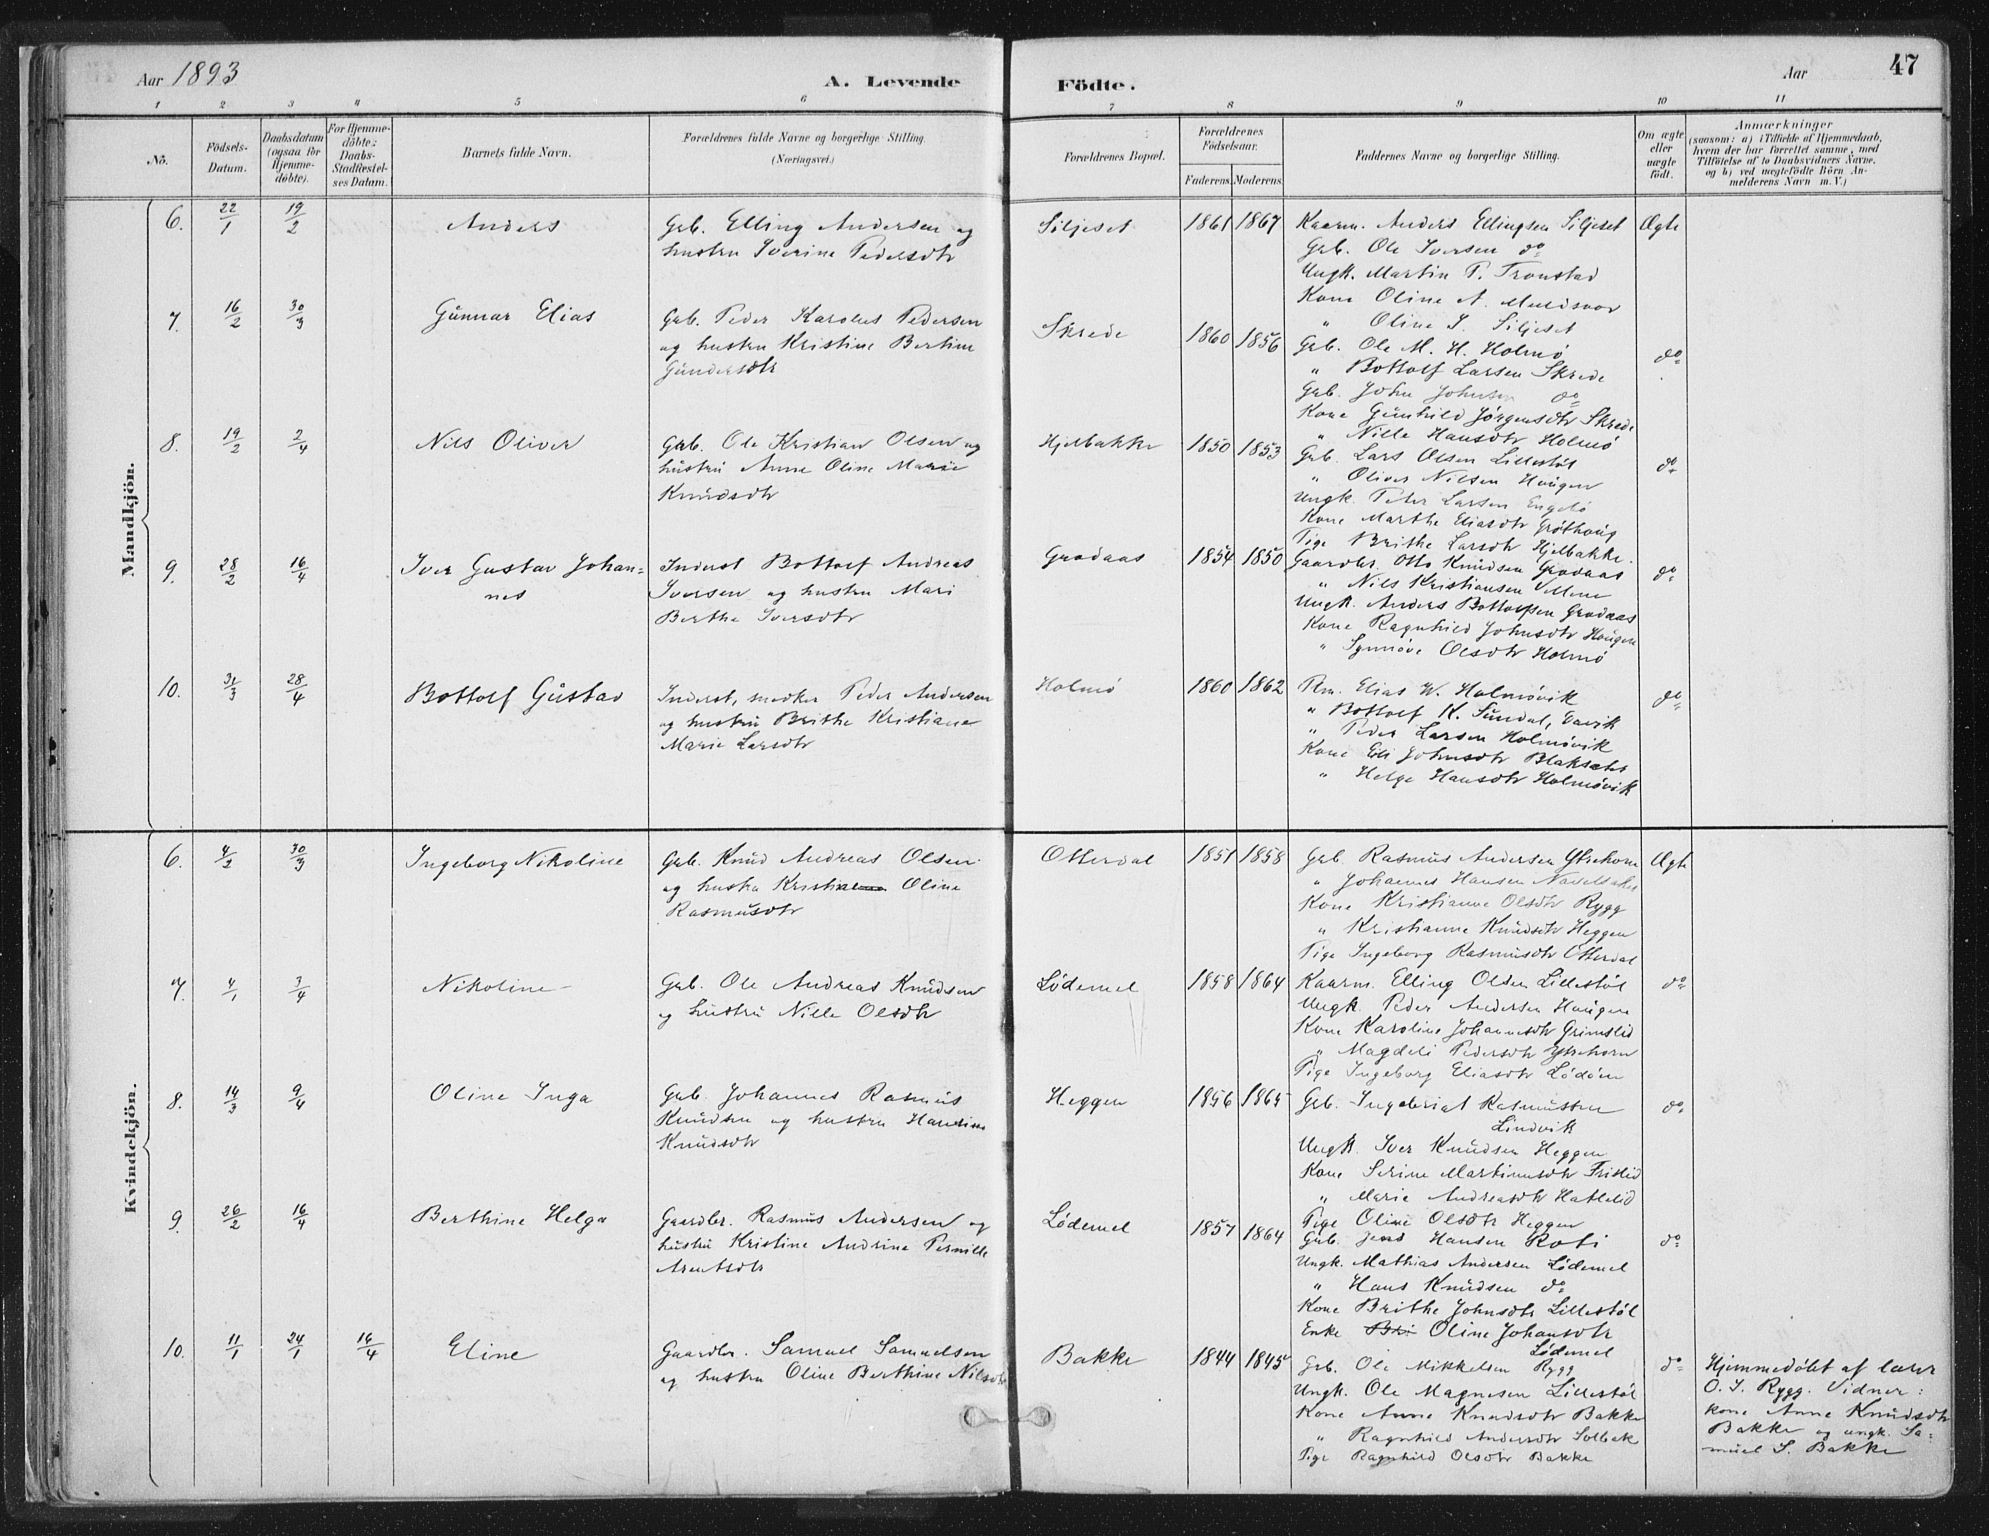 Aar 1893
A. Levende
Födte.
Aar
47
1 2 3 4 5 6 7 8 9 10 11
No.
Födsels-Datum.
Daabsdatum (ogsaa for Hjemme-döbte).
For Hjemme-döbte: Daabs-Stadfæstel-ses Datum.
Barnets fulde Navn.
Forældrenes fulde Navne og borgerlige Stilling. (Næringsvei.)
Forældrenes Bopæl.
Forældrenes Födselsaar.
Faderens. Moderens.
Faddernes Navne og borgerlige Stilling.
Om ægte eller uægte födt.
Anmærkninger
(saasom: a) i Tilfælde af Hjemmedaab, hvem der har forrettet samme, med Tilföielse af to Daabsvidners Navne. og b) ved uægtefödte Börn An-melderens Navn m. V.)
Mandkjön.
6. 22/1 19/2 Anders
Grb. Elling Andersen og
hustru Iverine Pedersdtr
Siljeset 1861 1867
Kaarm. Anders Ellingsen Siljeset Ægte
Grb. Ole Iversen do
Ungk. Martin P. Tronstad
Kone Oline A. Muldsvor
" Oline I. Siljeset
7. 16/2 30/3 Gunnar Elias
Grb. Peder Karolus Pedersen
og hustru Kristine Bertine
Gundersdtr
Skrede 1860 1856
Grb. Ole M. H. Holmö do
" Bottolf Larsen Skrede
Grb. John Johnsen do
Kone Gunhild Jörgensdtr Skrede
" Nille Hansdtr Holmö
8. 19/2 2/4 Nils Oliver
Grb. Ole Kristian Olsen og
hustru Anne Oline Marie
Knudsdtr
Hjelbakke 1850 1853
Grb. Lars Olsen Lillestöl do
" Oliver Nilsen Haugen
Ungk. Peter Larsen Engelö
Kone Marthe Eliasdtr Gröthaug
Pige Brithe Larsdtr Hjelbakke.
9. 28/2 16/4 Iver Gustav Johan=
nes
Inderst Bottolf Andreas
Iversen og hustru Mari
Berthe Iversdtr
Grodaas 1854 1850
Gaardbr. Otto Knudsen Grodaas do
" Nils Kristiansen Vollene
Ungk. Anders Bottolfsen Grodaas
Kone Ragnhild Johnsdtr Haugen
" Synnöve Olsdtr Holmö
10. 31/3 28/4 Bottolf Gustav
Inderst, snedker Peder Andersen
og hustru Brithe Kristiane
Marie Larsdtr
Holmö 1860 1862
Plm. Elias W. Holmövik do
" Bottolf K. Sundal, Davik
" Peder Larsen Holmövik
Kone Eli Johnsdtr Blaksæt
" Helge Hansdtr Holmövik
Kvindekjön.
6. 4/2 30/3 Ingeborg Nikoline
Grb. Knud Andreas Olsen
og hustru Kristiane Oline
Rasmusdtr
Otterdal 1851 1858
Grb. Rasmus Andersen Ytrehorn Ægte
" Johannes Hansen Navelsaker
Kone Kristianne Olsdtr Rygg
" Kristianne Knudsdtr Heggen
Pige Ingeborg Rasmusdtr Otterdal
7. 4/1 3/4 Nikoline
Grb. Ole Andreas Knudsen
og hustru Nille Olsdtr
Lödemel 1858 1864
Kaarm. Elling Olsen Lillestöl do
Ungk. Peder Andersen Haugen
Kone Karoline Johannesdtr Grimslid
" Magdeli Pedersdtr Ytrehorn
Pige Ingeborg Eliasdtr Lödöen
8. 14/3 9/4 Oline Inga
Grb. Johannes Rasmus
Knudsen og hustru Hansine
Knudsdtr
Heggen 1856 1865
Grb. Ingebrigt Rasmussen do
Lindvik
Ungk. Iver Knudsen Heggen
Kone Serine Martinusdtr Frislid
" Marie Andreasdtr Hatlelid
Pige Oline Olsdtr Heggen
9. 26/2 16/4 Berthine Helga
Gaardbr. Rasmus Andersen og
hustru Kristine Andrine Pernille
Arentsdtr
Lödemel 1857 1864
Grb. Jens Hansen Roti do
Ungk. Mathias Andersen Lödemel
" Hans Knudsen do
Kone Brithe Johnsdtr Lillestöl
Enke Bri Oline Johansdtr
Lödemel
10. 11/1 24/1 16/4 Eline
Gaardbr. Samuel Samuelsen
og hustru Oline Berthine Nilsdtr
Bakke 1844 1845
Grb. Ole Mikkelsen Rygg do
Ungk. Ole Magnesen Lillestöl
Kone Anne Knudsdtr Bakke
" Ragnhild Andersdtr Solbak
Pige Ragnhild Olsdtr Bakke
Hjemmedöbt af lærer
O. I. Rygg. Vidner:
kone Anne Knudsdtr
Bakke og ungk. Sa=
muel S. Bakke